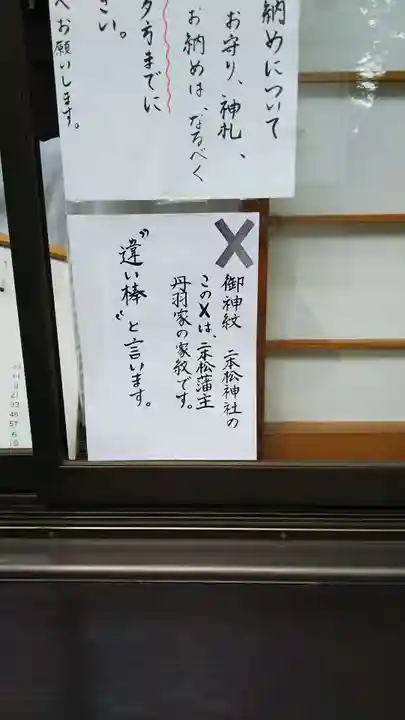 納めについて
お守り、神札、
お納めは、なるべく
夕方までに
さい。
へお願いします。
X
御神紋 二本松神社の
このXは、二本松藩主
丹羽家の家紋です。
"違い棒"と言います。